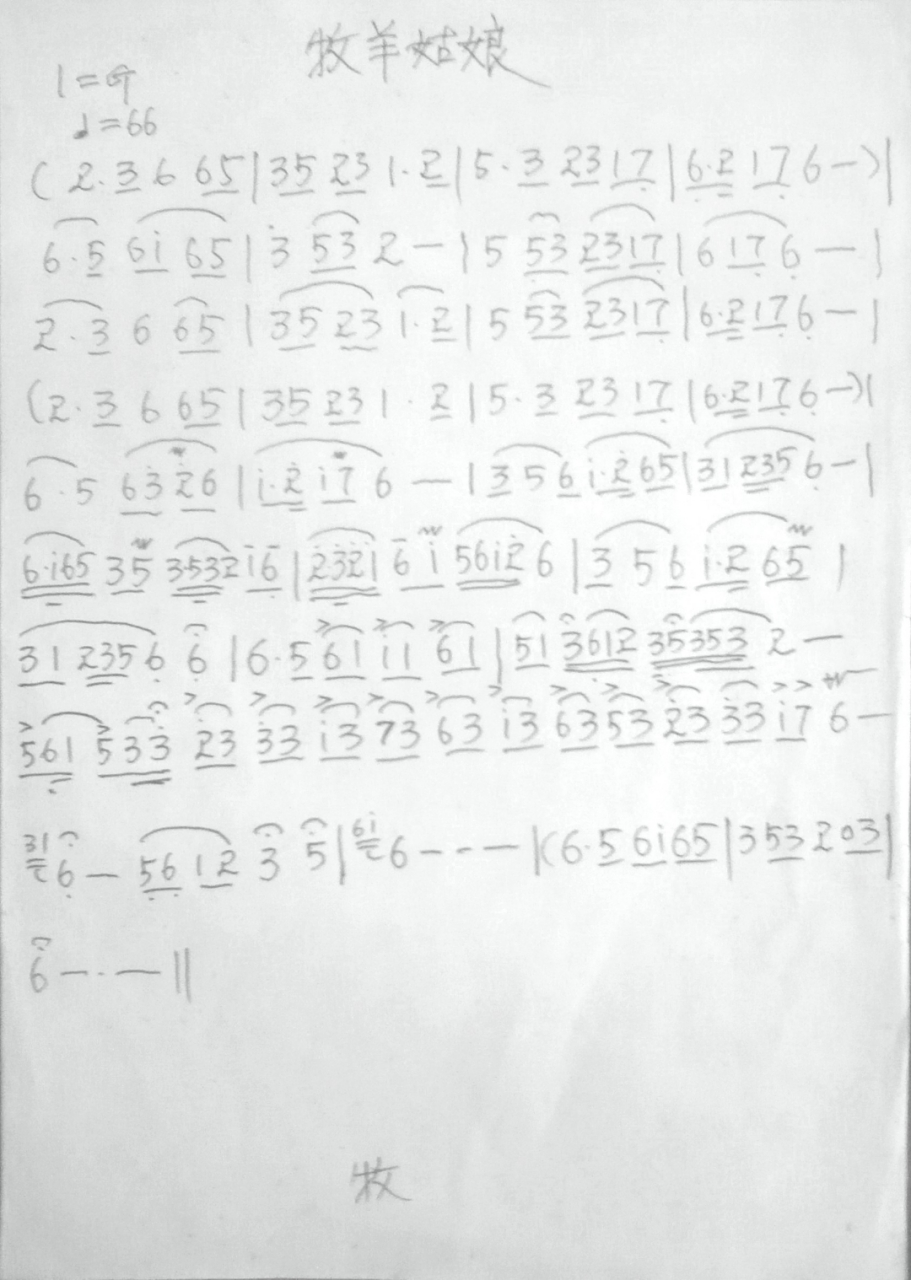 牧羊姑娘
1=G
♩=66
(2·3 6 65|35 23 1·2|5·3 23 17|6·2 17 6—)|
6·5 6i 65|3 53 2—|5 53 2317|6 17 6—|
2·3 6 65|35 23 1·2|5 53 2317|6·2176—|
(2·3 6 65|35 23 1·2|5·3 23 17|6·2176—)|
6·5 63 26|i·2 i7 6—|3 5 6 i·2 65|31 235 6—|
6·i65 35 3532 16|2321 6 i 56i2 6|3 5 6 i·2 65|
31 235 6 6|6·5 61 11 61|51 3612 35353 2—
561 533 23 33 i3 73 63 i3 63 53 23 33 i7 6—
31 6—56 12 3 5|6i 6---|(6·5 6i65|353 203|
6---||
牧